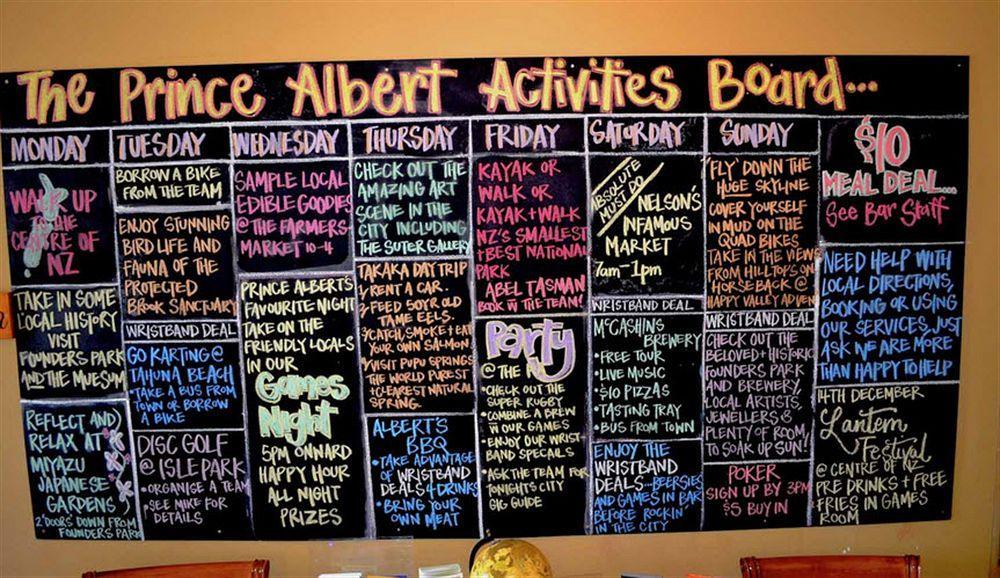 The Prince Albert Activities Board...
MONDAY
WALK UP
TO THE
CENTRE OF
NZ
TAKE IN SOME
LOCAL HISTORY
VISIT
FOUNDERS PARK
AND THE MUESUM
REFLECT AND
RELAX AT
MIYAZU
JAPANESE
GARDENS
2 DOORS DOWN FROM
FOUNDERS PARK
TUESDAY
BORROW A BIKE
FROM THE TEAM
ENJOY STUNNING
BIRD LIFE AND
FAUNA OF THE
PROTECTED
BROOK SANCTUARY
WRISTBAND DEAL
GO KARTING @
TAHUNA BEACH
- TAKE A BUS FROM
TOWN OR BORROW
A BIKE
DISC GOLF
@ ISLE PARK
• ORGANISE A TEAM
• SEE MIKE FOR
DETAILS
WEDNESDAY
SAMPLE LOCAL
EDIBLE GOODIES
@ THE FARMERS
MARKET 10-4
PRINCE ALBERTS
FAVOURITE NIGHT
TAKE ON THE
FRIENDLY LOCALS
IN OUR
Games
Night
5PM ONWARD
HAPPY HOUR
ALL NIGHT
PRIZES
THURSDAY
CHECK OUT THE
AMAZING ART
SCENE IN THE
CITY INCLUDING
THE SUTER GALLERY
TAKAKA DAY TRIP
1 RENT A CAR.
2 FEED 50YR OLD
TAME EELS.
3 CATCH, SMOKE + EAT
YOUR OWN SALMON.
4 VISIT PUPU SPRINGS
THE WORLD PUREST
+ CLEAREST NATURAL
SPRING.
ALBERT'S
BBQ
• TAKE ADVANTAGE
OF WRISTBAND
DEALS 4 DRINKS
• BRING YOUR
OWN MEAT
FRIDAY
KAYAK OR
WALK OR
KAYAK + WALK
NZ'S SMALLEST
+ BEST NATIONAL
PARK
ABEL TASMAN
BOOK W THE TEAM!
Party
@ THE
• CHECK OUT THE
SUPER RUGBY
• COMBINE A BREW
W OUR GAMES
• ENJOY OUR WRIST-
BAND SPECALS
• ASK THE TEAM FOR
TONIGHTS CITY
GIG GUIDE
SATURDAY
ABSOLUTE
MUST DO
NELSON'S
INFAMOUS
MARKET
7am-1pm
WRISTBAND DEAL
McCASHINS
BREWERY
• FREE TOUR
• LIVE MUSIC
• $10 PIZZAS
• TASTING TRAY
• BUS FROM TOWN
ENJOY THE
WRISTBAND
DEALS... BEERSIES
AND GAMES IN BAR
BEFORE ROCKIN'
IN THE CITY
SUNDAY
'FLY' DOWN THE
HUGE SKYLINE
COVER YOURSELF
IN MUD ON THE
QUAD BIKES
TAKE IN THE VIEW
FROM HILLTOPS ON
HORSEBACK @
HAPPY VALLEY ADVEN
WRISTBAND DEAL
CHECK OUT THE
BELOVED + HISTORIC
FOUNDERS PARK
AND BREWERY,
LOCAL ARTISTS,
JEWELLERS &
PLENTY OF ROOM
TO SOAK UP SUN!
POKER
SIGN UP BY 3PM
$5 BUY IN
$10
MEAL DEAL...
See Bar Staff
NEED HELP WITH
LOCAL DIRECTIONS,
BOOKING OR USING
OUR SERVICES, JUST
ASK WE ARE MORE
THAN HAPPY TO HELP
14TH DECEMBER
Lantern
Festival
@ CENTRE OF NZ
PRE DRINKS + FREE
FRIES IN GAMES
ROOM